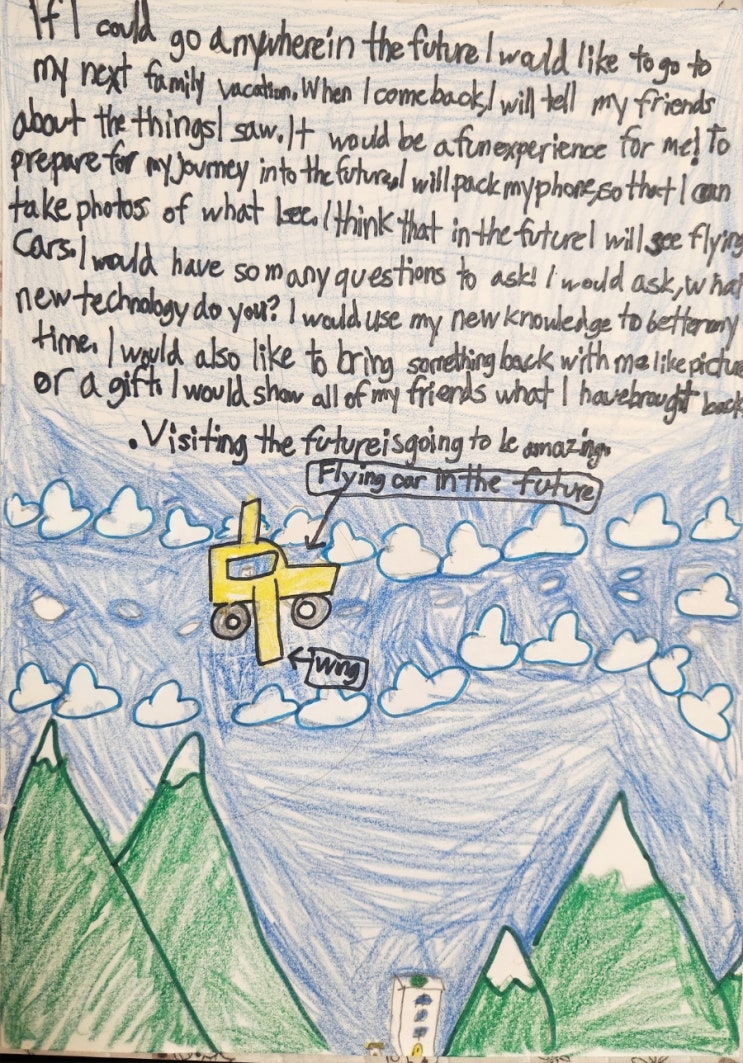 If I could go anywhere in the future I would like to go to
my next family vacation. When I come back, I will tell my friends
about the things I saw. It would be a fun experience for me! To
prepare for my journey into the future, I will pack my phone, so that I can
take photos of what I see. I think that in the future I will see flying
Cars. I would have so many questions to ask! I would ask, what
new technology do you? I would use my new knowledge to better my
time. I would also like to bring something back with me like picture
or a gift. I would show all of my friends what I have brought back
. Visiting the future is going to be amazing.
Flying car in the future
Wing